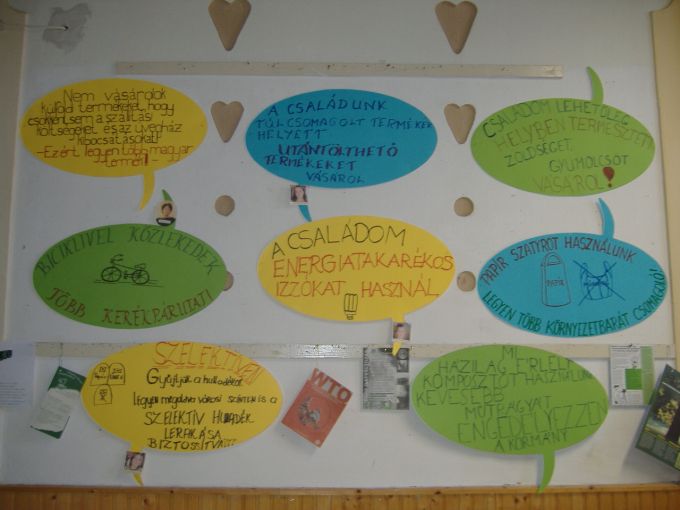 Nem vásárolok
külföldi termékeket, hogy
csökkentsem a szállítási
költségeket és az üvegház
- kibocsátásokat!
- Ezért legyen több magyar
- termék!! -
A CSALÁDUNK
TÚLCSOMAGOLT TERMÉKEK
HELYETT
UTÁNTÖLTHETŐ
TERMÉKEKET
VÁSÁROL
CSALÁDOM LEHETŐLEG
HELYBEN TERMESZTETT
ZÖLDSÉGET,
GYÜMÖLCSÖT
VÁSÁROL!
BICIKLIVEL KÖZLEKEDEK
TÖBB KERÉKPÁRUTAT!
A CSALÁDOM
ENERGIATAKARÉKOS
IZZÓKAT HASZNÁL.
PAPÍR SZATYROT HASZNÁLUNK
PAPÍR
LEGYEN TÖBB KÖRNYEZETBARÁT CSOMAGOLÓ!
SZELEKTÍVEN
Gyűjtjük a hulladékot
Legyen megoldva városi szinten is a
SZELEKTÍV HULLADÉK
LERAKÁSA
BIZTOSÍTVA
WTO
MI
HÁZILAG ÉRLELT
KOMPOSZTOT HASZNÁLUNK
KEVESEBB
MŰTRÁGYÁT
ENGEDÉLYEZZEN
A KORMÁNY